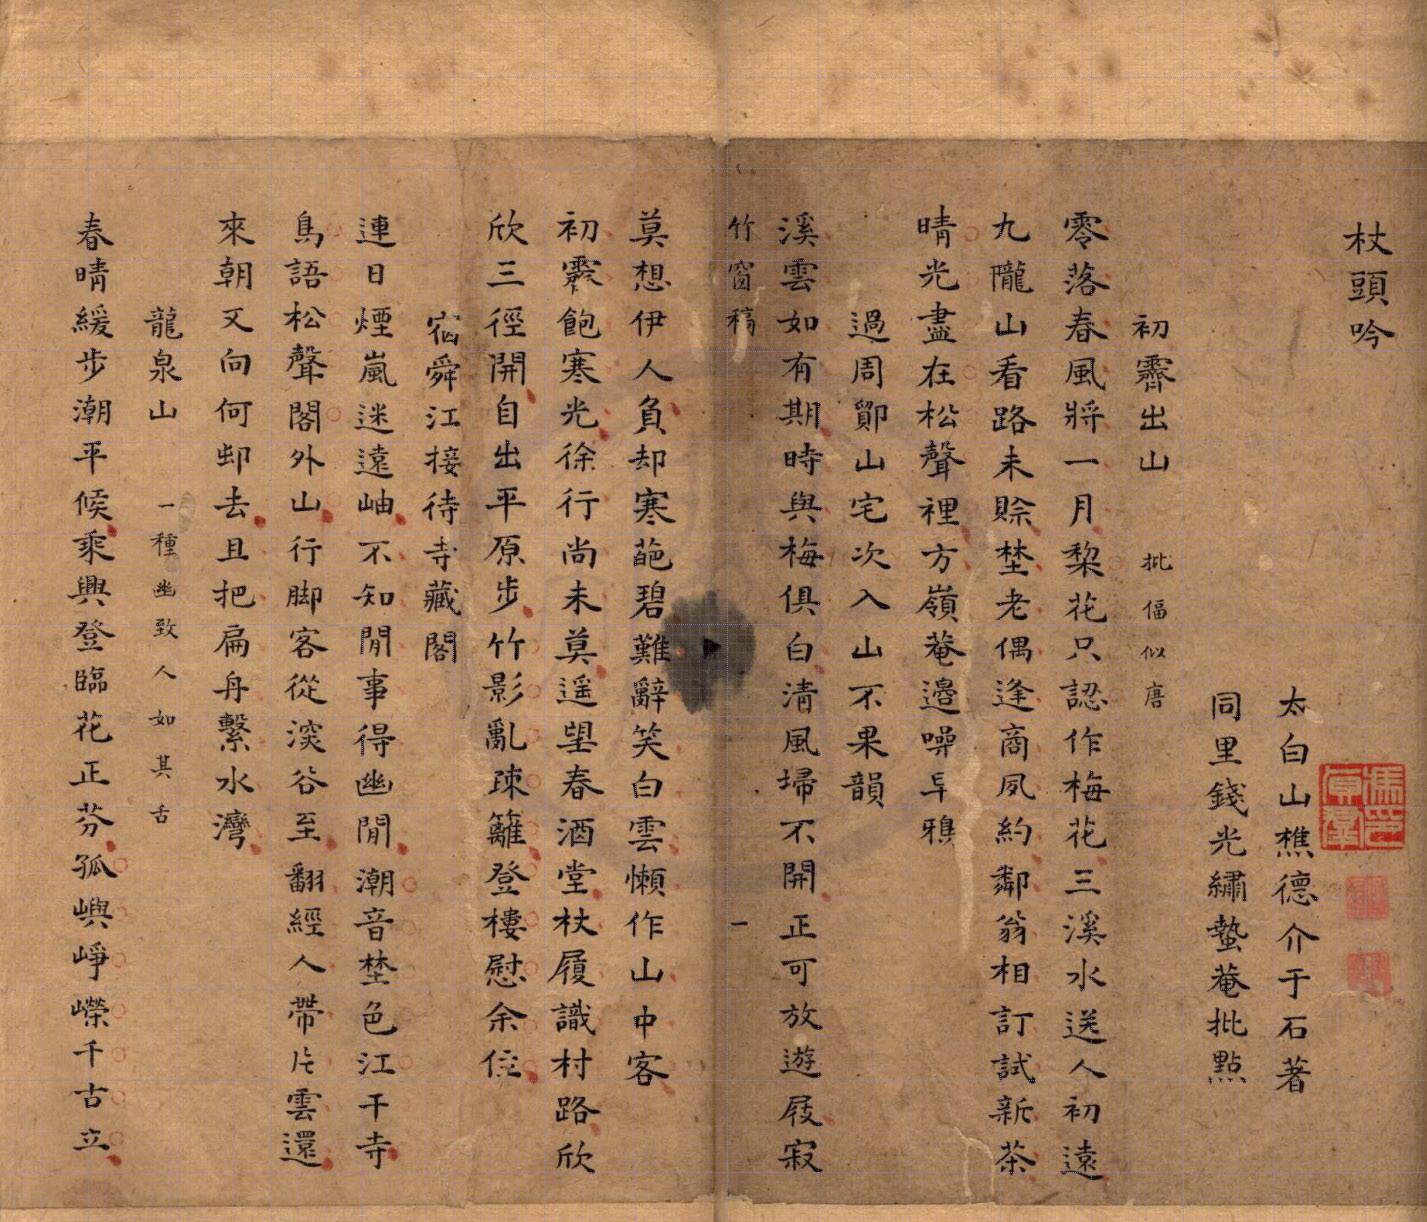 杖頭吟
太白山樵德介于石著
同里錢光繡蟄菴批點
初霽出山 批偪似唐
零落春風將一月棃花只認作梅花三溪水送人初遠
九隴山看路未賒埜老偶逢商夙約鄰翁相訂試新茶
晴光盡在松聲裡方嶺菴邊噪早鴉
過周鄮山宅次入山不果韻
溪雲如有期時與梅俱白清風埽不開正可放遊屐寂
竹窗稿 一
莫想伊人負却寒葩碧難辭笑白雲懶作山中客
初霽飽寒光徐行尚未莫遥望春酒堂杖履識村路欣
欣三徑開自出平原步竹影亂疎籬登樓慰余住
宿舜江接待寺藏閣
連日煙嵐迷遠岫不知閒事得幽閒潮音埜色江干寺
鳥語松聲閣外山行脚客從深谷至翻經人帶片雲還
來朝又向何邨去且把扁舟繫水灣
龍泉山 一種幽致人如其舌
春晴緩步潮平候乘興登臨花正芬孤嶼崢嶸千古立